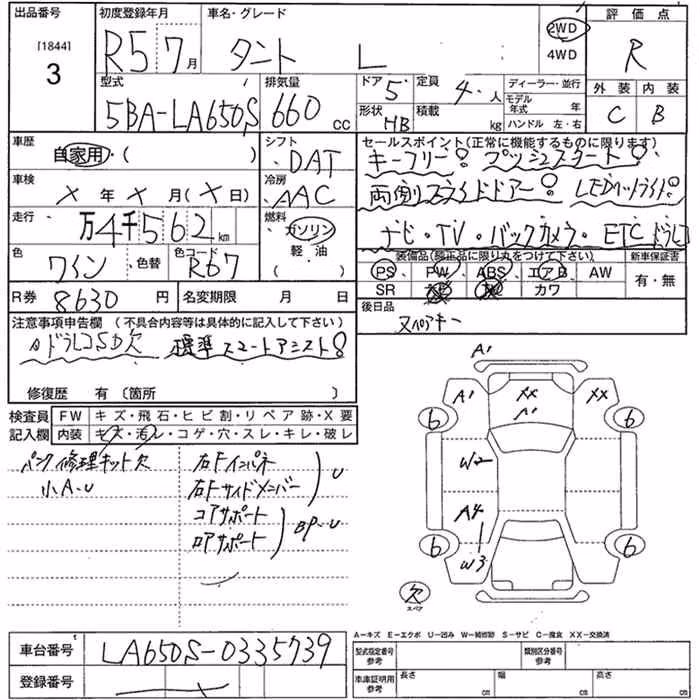 出品番号 初度登録年月 車名・グレード 2WD 評価点
[1844] R5 7月 タント L 4WD R
3 型式 排気量 ドア 5 定員 4.人 ディーラー・並行 外装 内装
5BA-LA650S 660 cc 形状 HB 積載 kg モデル年式 年 C B
ハンドル 左・右
車歴 シフト セールスポイント(正常に機能するものに限ります)
自家用・( ) DAT キーフリー! プッシュスタート!
車検 冷房 両側スライドドアー! LEDヘットライト!
X年X月(X日) AAC ナビ・TV・バックカメラ・ETCドラレコ
走行 万4千562km 燃料 ガソリン
軽・油
色 ワイン 色替 色コード R67 装備品(純正品に限り丸をつけて下さい) 新車保証書
PS PW ABS エアB AW 有・無
SR カワ
R券 8630円 名変期限 月 日 後日品
スペアキー
注意事項申告欄(不具合内容等は具体的に記入して下さい)
ドラレコSD欠 標準スマートアシスト!
修復歴 有〔箇所 〕
検査員 FW キズ・飛石・ヒビ割・リペア跡・X要
記入欄 内装 キズ・汚レ・コゲ・穴・スレ・キレ・破レ
パンク修理キット欠 右Fインパネ U
小A.U 右Fサイドメンバー
コアサポート BP.U
ロアサポート
A1
A1 XX XX
A1
6 6
W2
A4
6 6
W3
欠
スペア
A－キズ E－エクボ U－凹み W－補修跡 S－サビ C－腐食 XX－交換済
車台番号 LA650S-0335739 型式指定番号 参考 類別区分番号 参考
登録番号 車庫証明用 参考 長さ cm 幅 cm 高さ cm